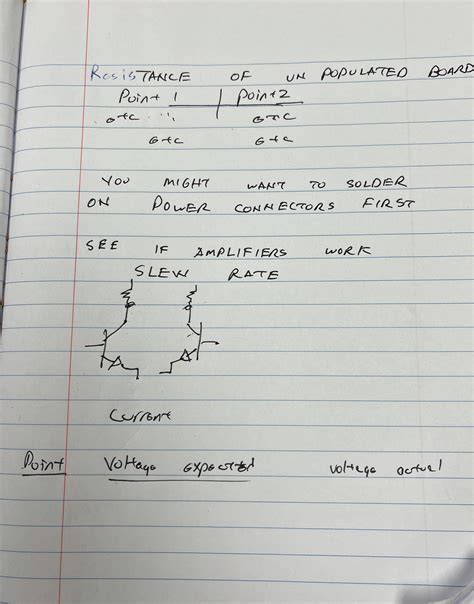 Resistance OF UN POPULATED BOARD
Point 1 Point 2
etc etc
etc etc
YOU MIGHT WANT TO SOLDER
ON POWER CONNECTORS FIRST
SEE IF AMPLIFIERS WORK
SLEW RATE
Current
Point Voltage expected voltage actual